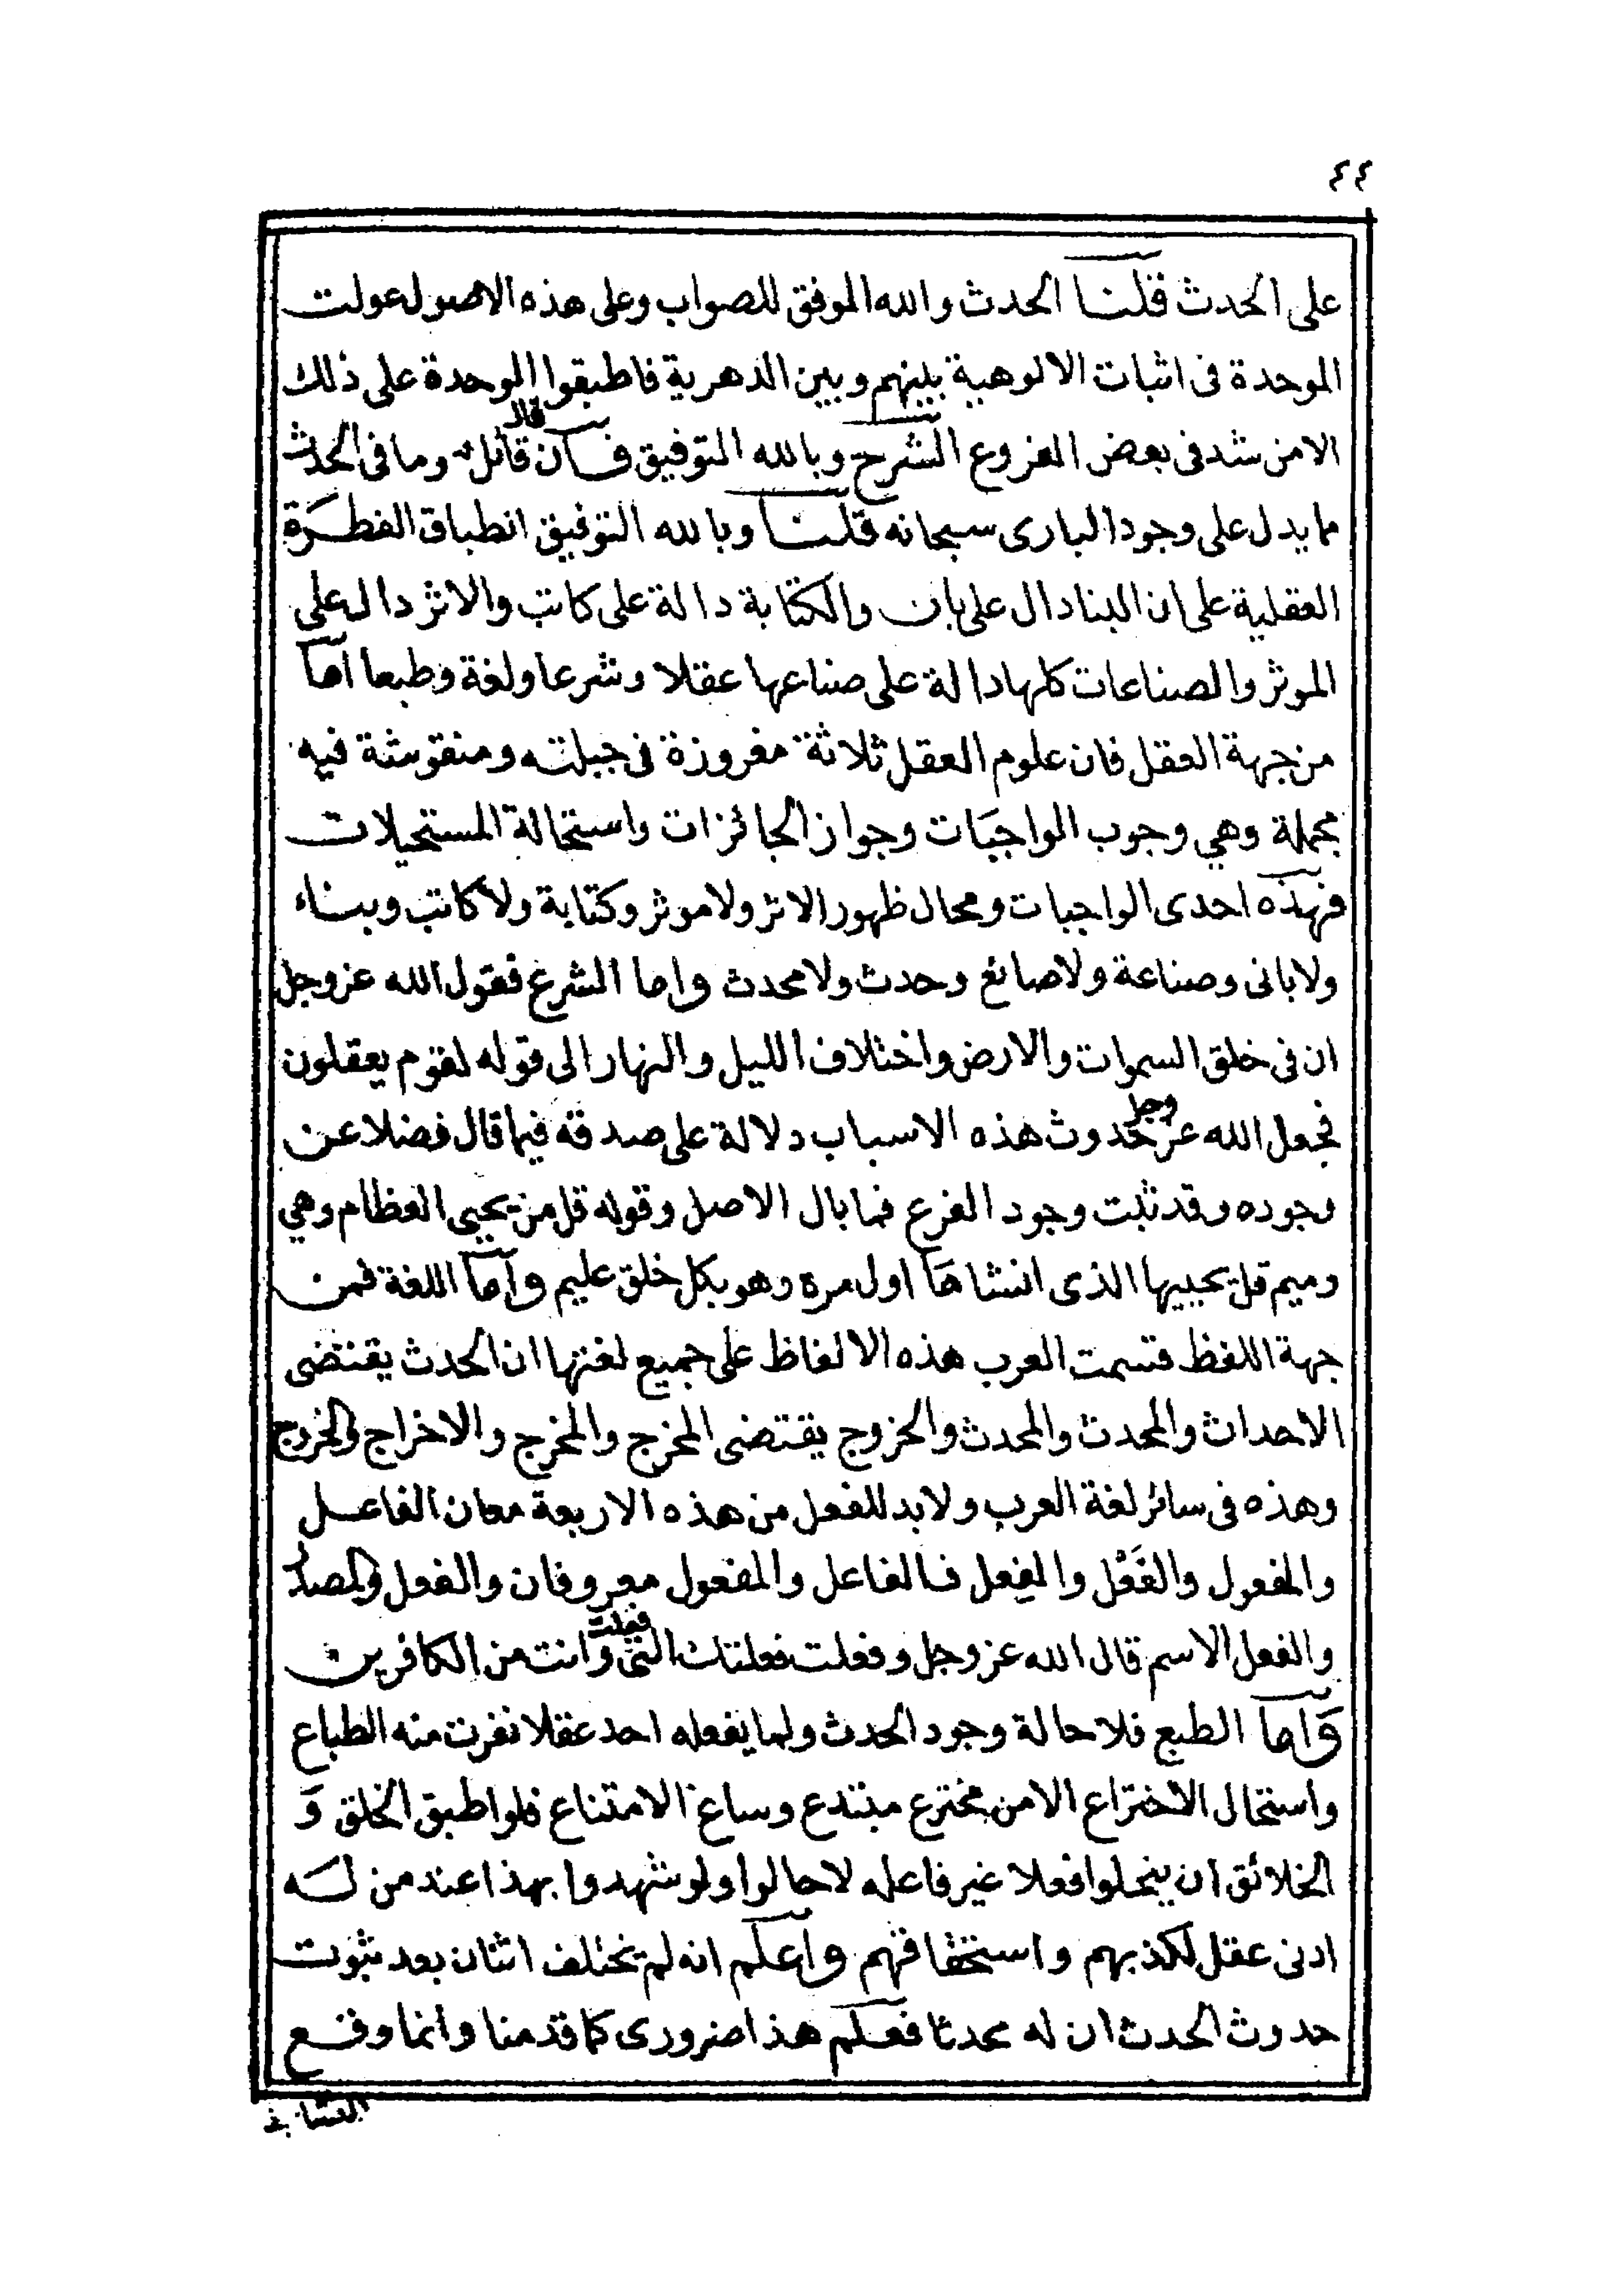 ٤٤
على الحدث قلنا الحدث والله الموفق للصواب وعلى هذه الاصول عولت
الموحدة فى اثبات الالوهية بينهم وبين الدهرية فاطبقوا الموحدة على ذلك
الامن شد فى بعض الفروع الشرح وبالله التوفيق فان قال قائل وما فى الحدث
ما يدل على وجود البارى سبحانه قلنا وبالله التوفيق انطباق الفطرة
العقلية على ان البنا دال على بان والكتابة دالة على كاتب والاثر دال على
الموثر والصناعات كلها دالة على صناعها عقلا وشرعا ولغة وطبعا اما
من جهة العقل فان علوم العقل ثلاثة مغروزة فى جبلته ومنقوشة فيه
مجملة وهي وجوب الواجبات وجواز الجائزات واستحالة المستحيلات
فهذه احدى الواجبات ومحال ظهور الاثر ولا موثر وكتابة ولا كاتب وبناء
ولا بانى وصناعة ولا صانع وحدث ولا محدث واما الشرع فقول الله عز وجل
ان فى خلق السموات والارض واختلاف الليل والنهار الى قوله لقوم يعقلون
فجعل الله عز وجل حدوث هذه الاسباب دلالة على صدقه فيما قال فضلا عن
وجوده وقد ثبت وجود الفرع فما بال الاصل وقوله قل من يحيى العظام وهي
رميم قل يحييها الذى انشاها اول مرة وهو بكل خلق عليم واما اللغة فمن
جهة اللفظ قسمت العرب هذه الالفاظ على جميع لغتها ان الحدث يقتضى
الاحداث والمحدث والمحدث والخروج يقتضى المخرج والمخرج والاخراج والخروج
وهذه فى سائر لغة العرب ولا بد للفعل من هذه الاربعة معان الفاعل
والمفعول والفَعْل والفِعل فالفاعل والمفعول معروفان والفعل والمصدر
والفعل الاسم قال الله عز وجل وفعلت فعلتك التى فعلت وانت من الكافرين
واما الطبع فلاحالة وجود الحدث ولما يفعله احد عقلا نفرت منه الطباع
واستحال الاختراع الا من مخترع مبتدع وساغ الامتناع فلو اطبق الخلق و
الخلائق ان ينحلوا فعلا غير فاعله لاحالوا ولو شهدوا بهذا عند من له
ادنى عقل لكذبهم واستخفافهم واعلم انه لم يختلف اثنان بعد ثبوت
حدوث الحدث ان له محدثا فعلم هذا ضرورى كما قدمنا وانما وقع